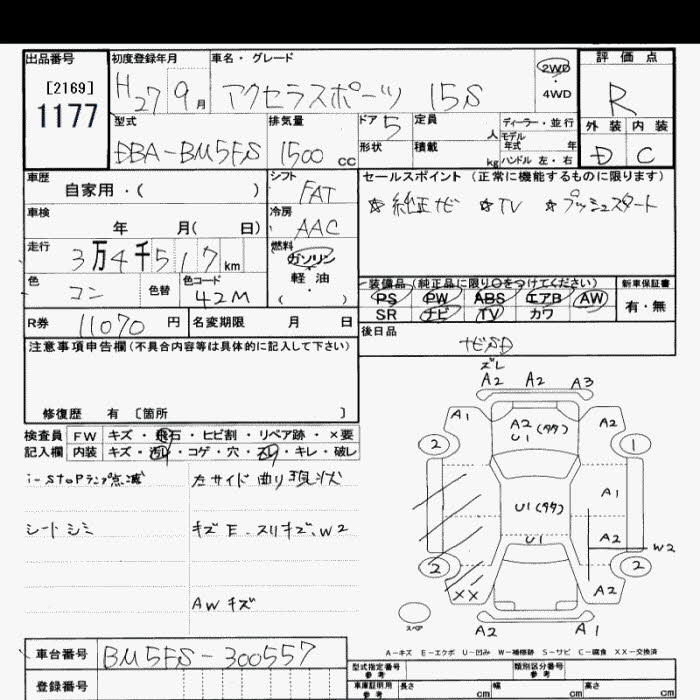 出品番号 初度登録年月 車名・グレード 評価点
[2169] H27 9月 アクセラスポーツ 15S 2WD R
1177 4WD
型式 排気量 ドア 定員 ディーラー・並行 外装 内装
DBA-BM5FS 1500cc 5 人 モデル年式 年 D C
形状 積載 kg ハンドル 左・右
車歴 シフト セールスポイント(正常に機能するものに限ります)
自家用・( ) FAT ☆純正ナビ ☆TV ☆プッシュスタート
車検 冷房
年 月( 日) AAC
走行 燃料
3万4千517km ガソリン
色 色替 色コード 軽油 装備品(純正品に限り○をつけてください) 新車保証書
コン 42M ( ) PS PW ABS エアB AW 有・無
SR ナビ TV カワ
R券 11070円 名変期限 月 日 後日品
ナビSD
注意事項申告欄(不具合内容等は具体的に記入して下さい)
修復歴 有 〔箇所 〕
検査員 FW キズ・飛石・ヒビ割・リペア跡・×要
記入欄 内装 キズ・汚れ・コゲ・穴・スレ・キレ・破レ
i-STOPランプ点滅 左サイド曲り現状
シートシミ キズE.スリキズ.W2
AWキズ
ズレ
A2 A2 A3
A1 A2 U1(タタ) A2
2 1
U1(タタ) A1
U1 A2 W2
2 2
XX A2
スペア A2 A1
A-キズ E-エクボ U-凹み W-補修跡 S-サビ C-腐食 XX-交換済
車台番号 BM5FS-300557
登録番号
型式指定番号 参考 類別区分番号 参考
車庫証明用 参考 長さ cm 幅 cm 高さ cm